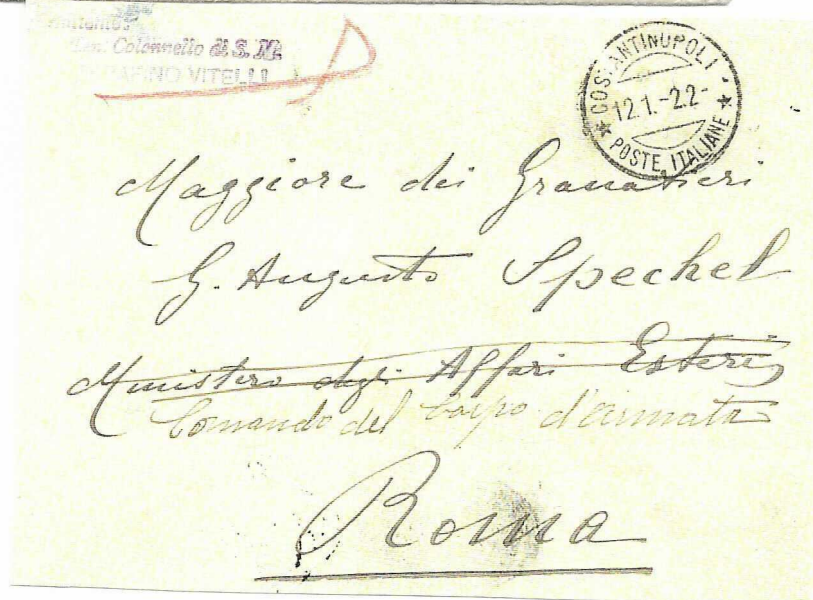 Mittente:
Ten. Colonnello di S. M.
VITELLI
COSTANTINOPOLI
12.1.-22-
POSTE ITALIANE
Maggiore dei Granatieri
G. Augusto Spechel
Ministero degli Affari Esteri
Comando del Corpo d'armata
Roma